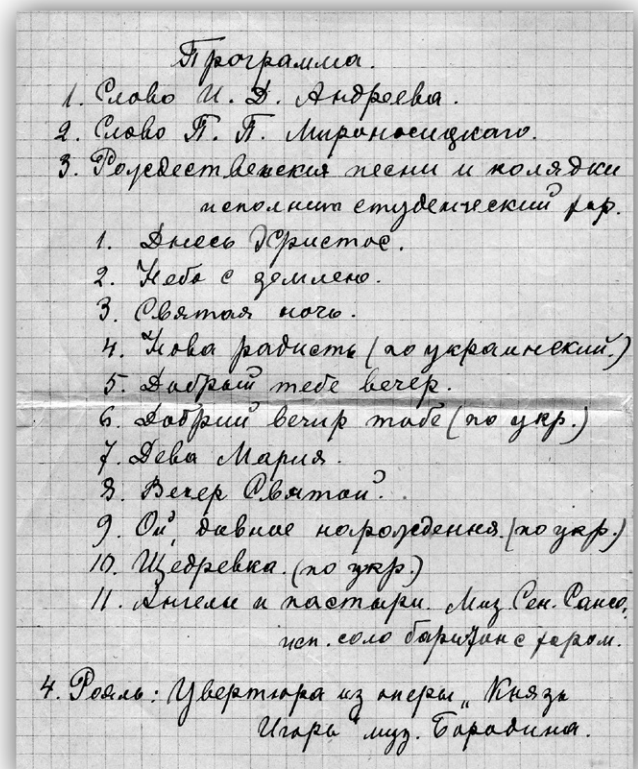 Программа.
1. Слово И. Д. Андреева.
2. Слово П. П. Мироносицкаго.
3. Рождественския песни и колядки
исполнит студенческий хор.
1. Днесь Христос.
2. Небо с землею.
3. Святая ночь.
4. Нова радисть (по украинский.)
5. Добрый тебе вечер.
6. Добрий вечир тобе (по укр.)
7. Дева Мария.
8. Вечер Святой.
9. Ой, давное народження. (по укр.)
10. Щедревка. (по укр.)
11. Ангелы и пастыри. Муз. Сен. Санса,
исп. соло баритон с хором.
4. Рояль: Увертюра из оперы „Князь
Игорь" муз. Бородина.